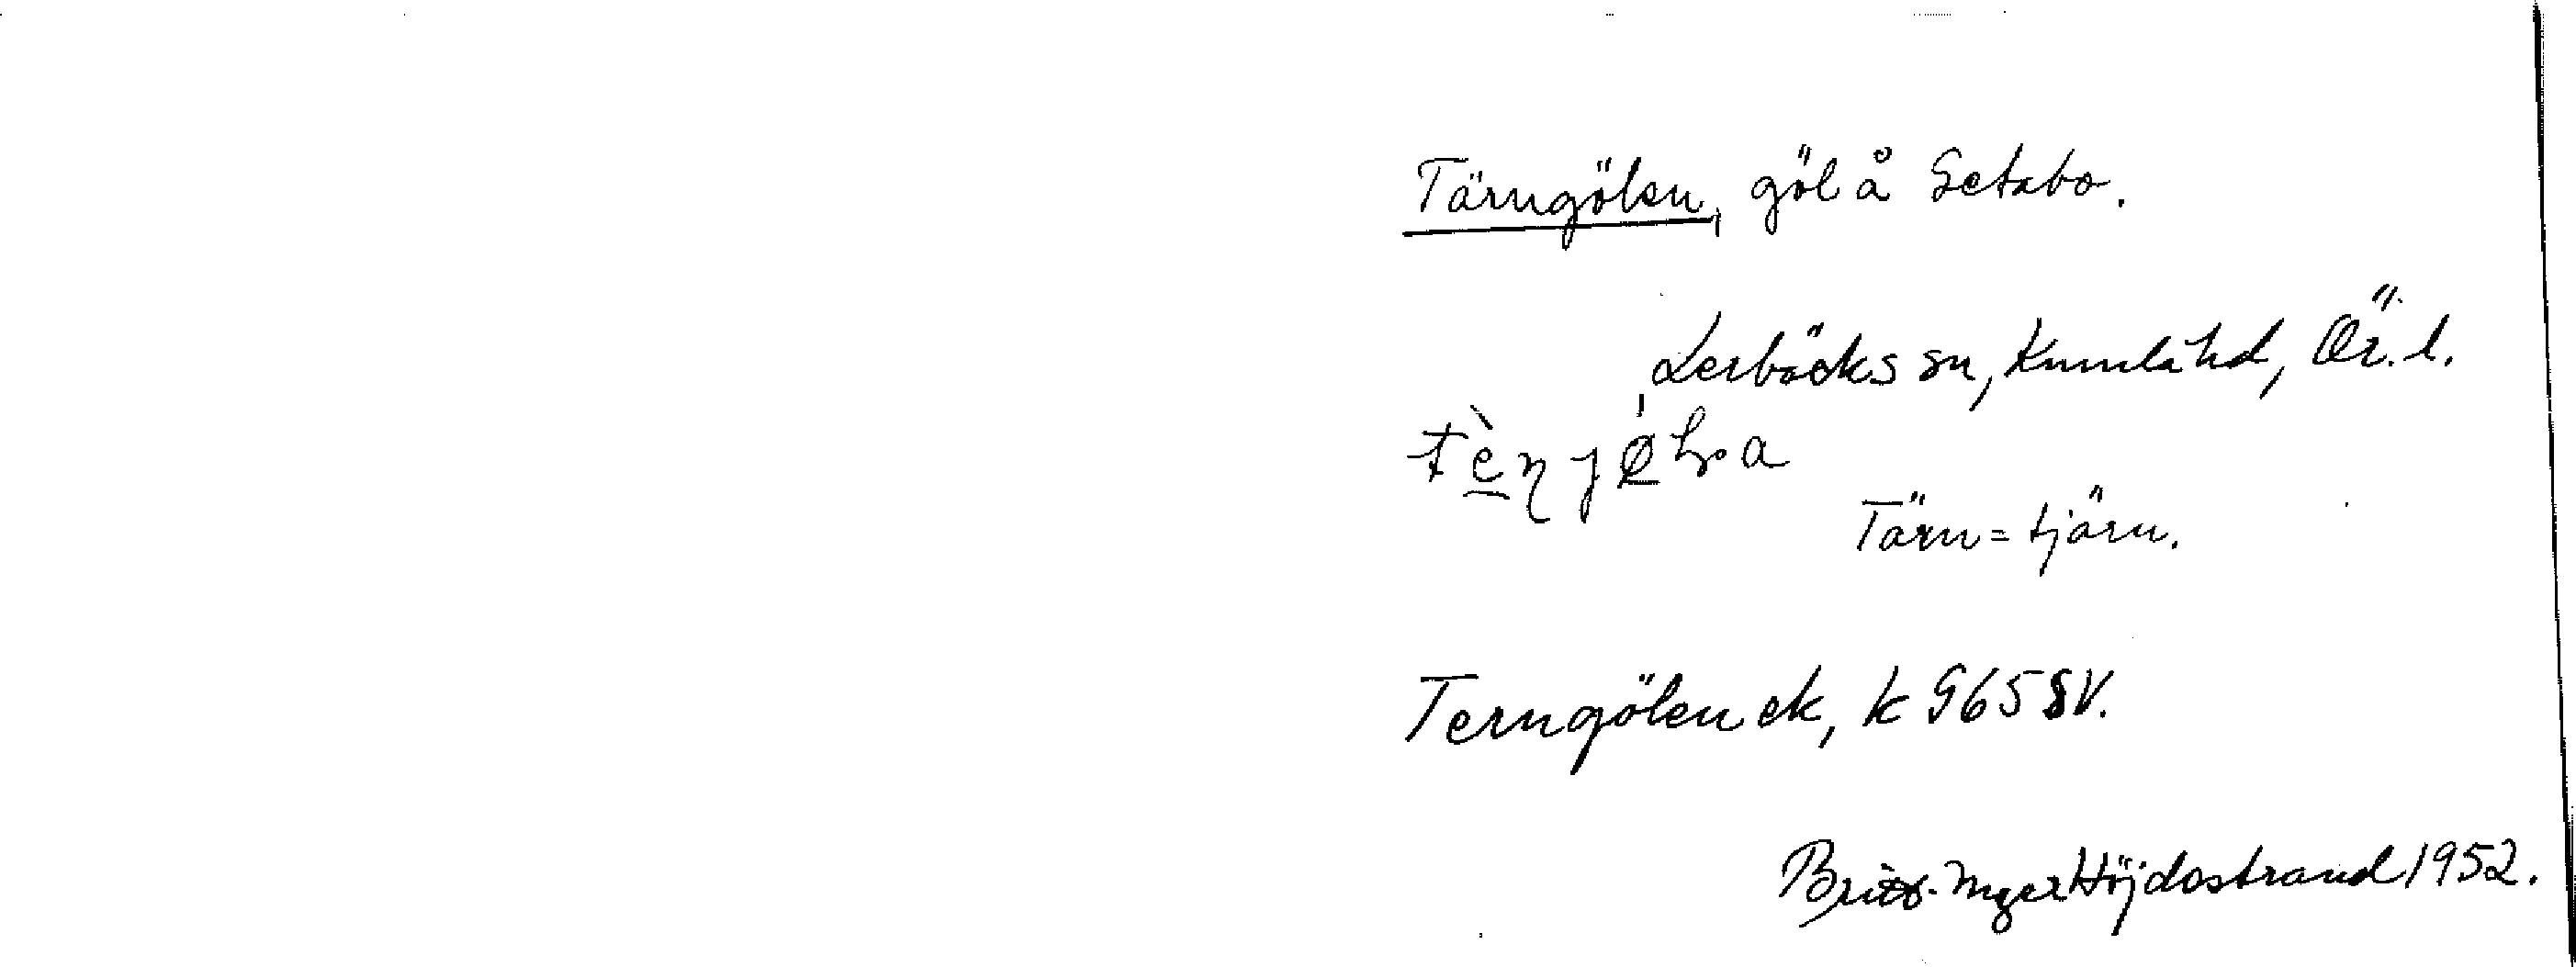 Tärngölen, göl å Setabo.
Lerbäcks sn, Kumla hd, Ör. l.
Tärn = tjärn.
Terngölen ek, k 965 SV.
Britt-Inger Höjdestrand 1952.